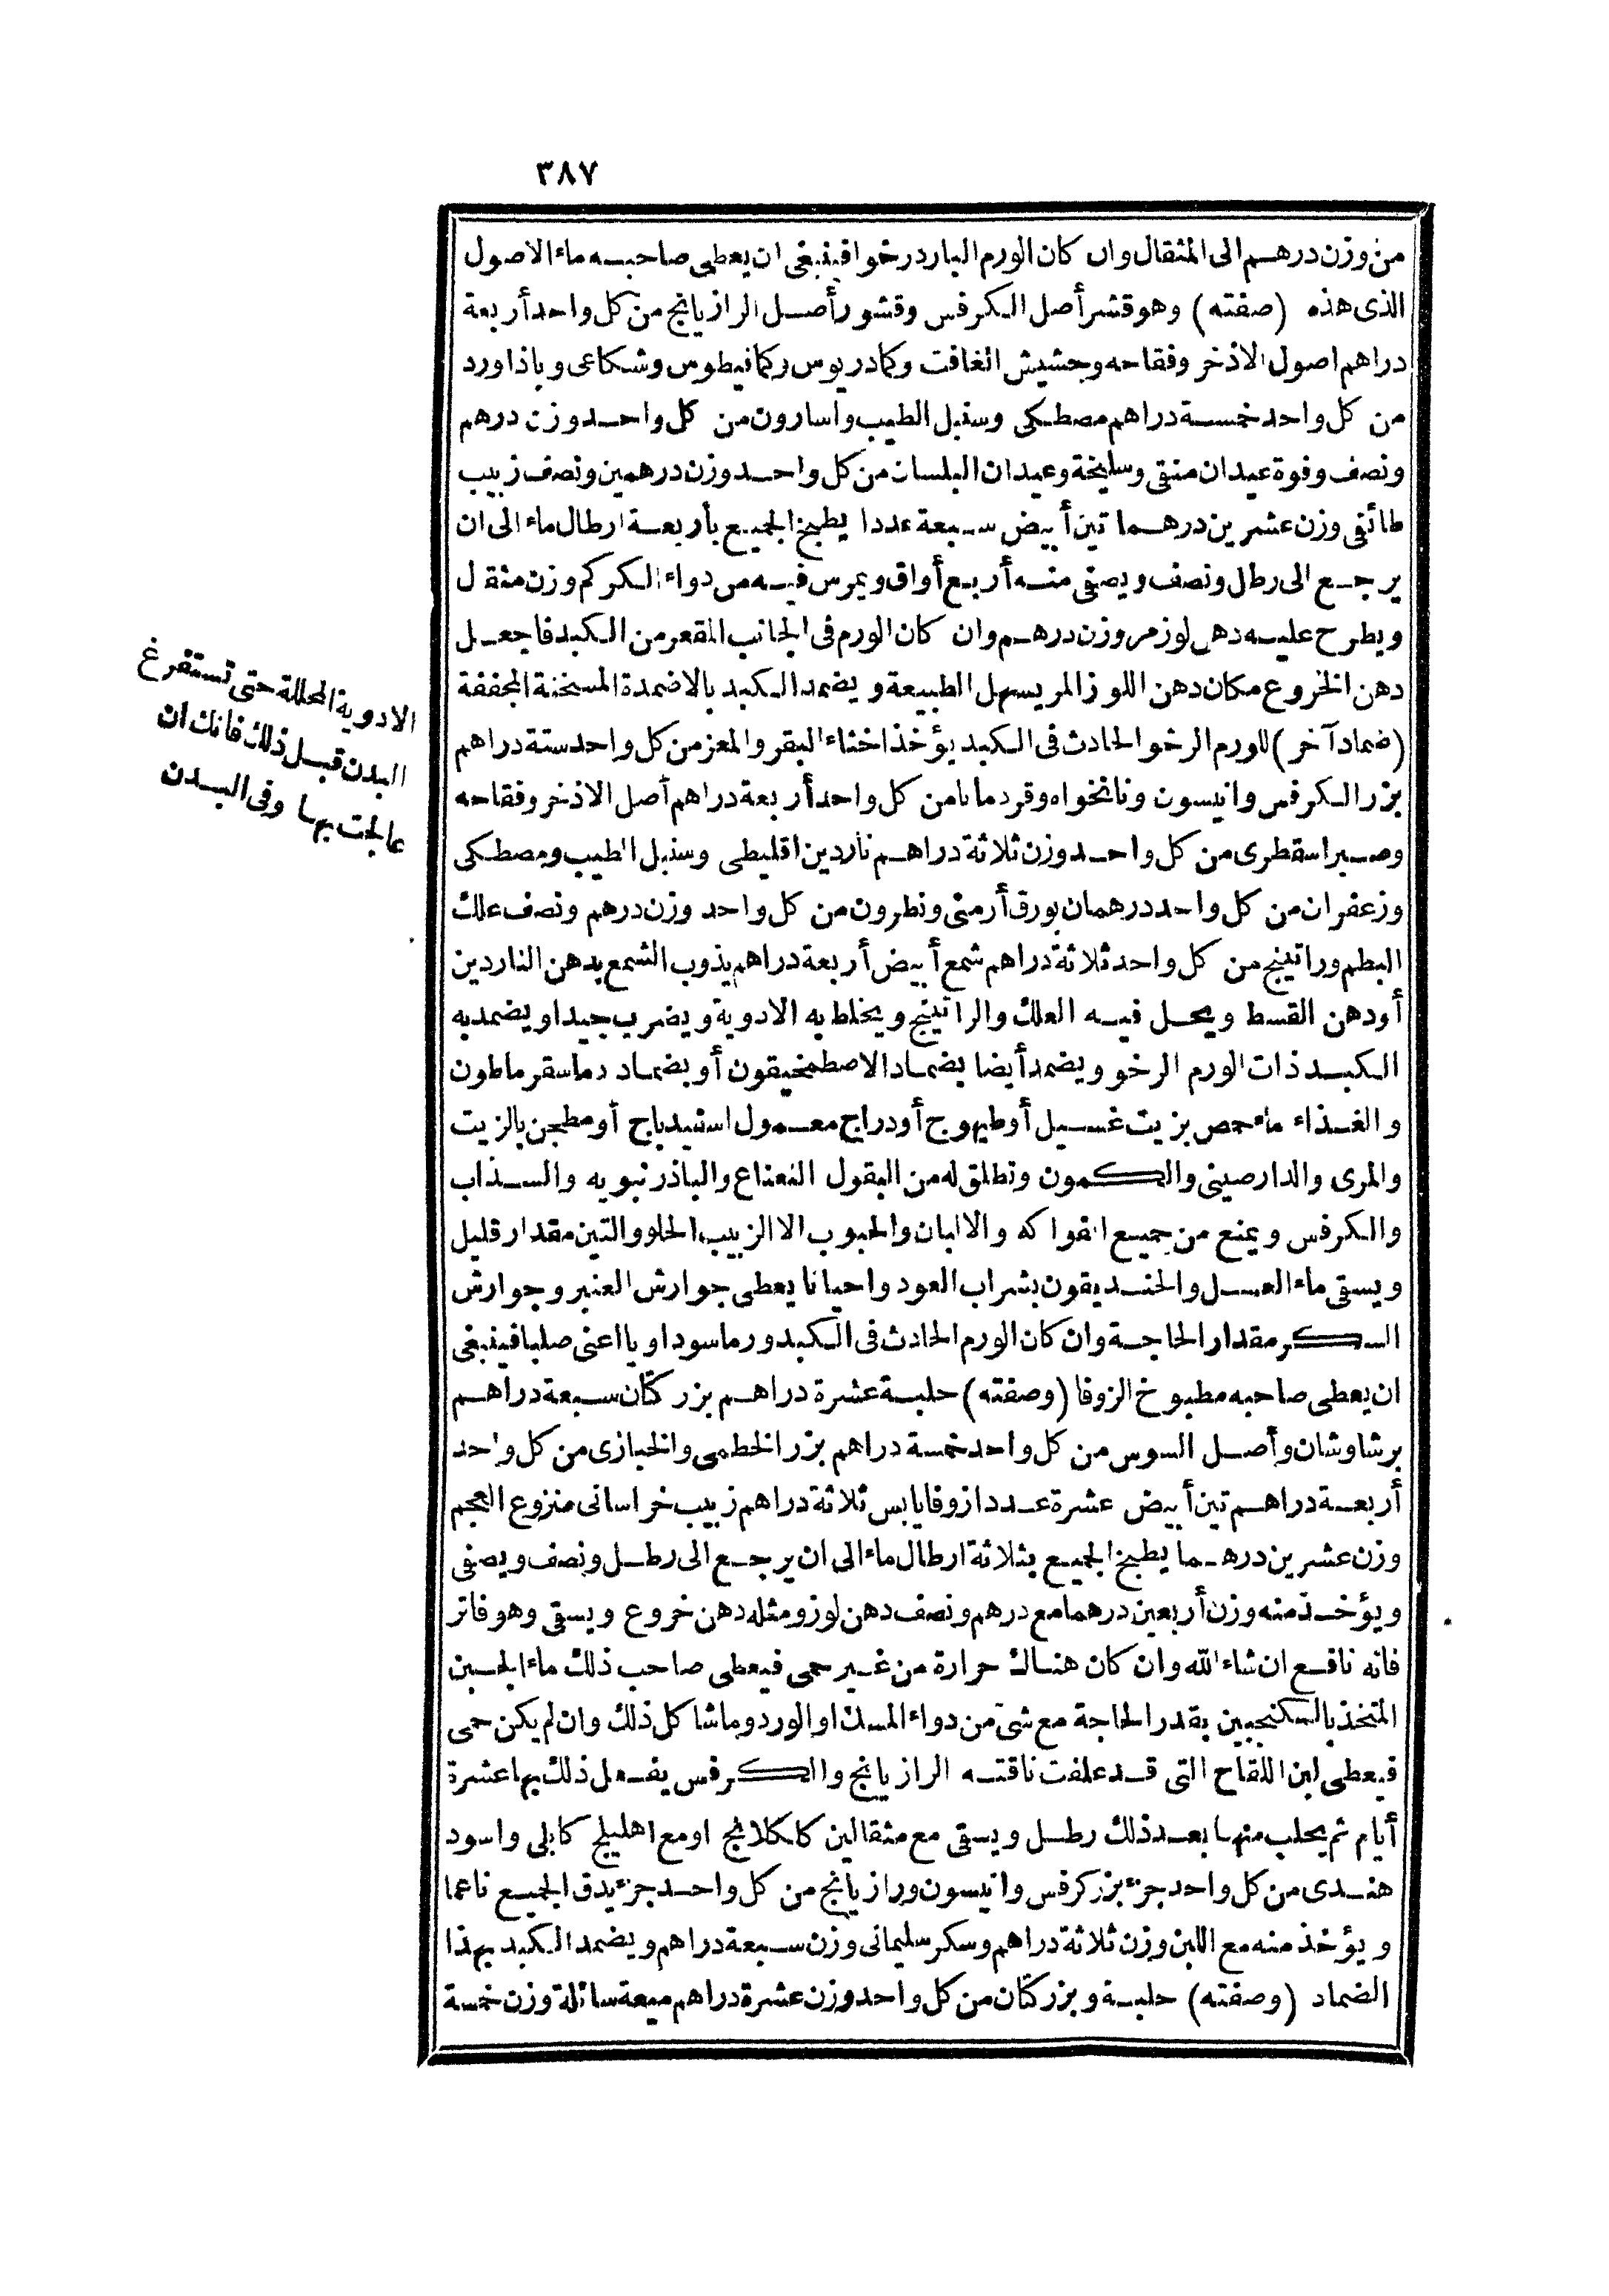 ٣٨٧
من وزن درهم الى المثقال وان كان الورم البارد رخوا فينبغى ان يعطى صاحبه ماء الاصول
الذى هذه (صفته) وهو قشر أصل الكرفس وقشور أصل الرازيانج من كل واحد أربعة
دراهم اصول الاذخر وفقاحه وحشيش الغافت وكمادريوس وكمافيطوس وشكاعى وباذاورد
من كل واحد خمسة دراهم مصطكى وسنبل الطيب واسارون من كل واحد وزن درهم
ونصف وفوة عيدان منقى وسليخة وعيدان البلسان من كل واحد وزن درهمين ونصف زبيب
طائفى وزن عشرين درهما تين أبيض سبعة عددا يطبخ الجميع بأربعة ارطال ماء الى ان
يرجع الى رطل ونصف ويصفى منه أربع أواق ويمرس فيه من دواء الكركم وزن مثقال
ويطرح عليه دهن لوز مر وزن درهم وان كان الورم فى الجانب المقعر من الكبد فاجعل
دهن الخروع مكان دهن اللوز المر يسهل الطبيعة ويضمد الكبد بالاضمدة المسخنة المجففة
(ضماد آخر) للورم الرخو الحادث فى الكبد يؤخذ اخثاء البقر والمعز من كل واحد ستة دراهم
بزر الكرفس وانيسون ونانخواه وقردمانا من كل واحد أربعة دراهم أصل الاذخر وفقاحه
وصبر اسقطرى من كل واحد وزن ثلاثة دراهم ناردين اقليطى وسنبل الطيب ومصطكى
وزعفران من كل واحد درهمان بورق أرمنى ونطرون من كل واحد وزن درهم ونصف علك
البطم وراتينج من كل واحد ثلاثة دراهم شمع أبيض أربعة دراهم يذوب الشمع بدهن الناردين
أودهن القسط ويحل فيه العلك والراتينج ويخلط به الادوية ويضرب جيدا ويضمد به
الكبد ذات الورم الرخو ويضمد أيضا بضماد الاصطمخيقون أو بضماد دماسقر ماطون
والغذاء ماء حمص بزيت غسيل أوطيهوج أودراج معمول اسفيدباج أو مطجن بالزيت
والمرى والدارصينى والكمون وتطلق له من البقول النعناع والباذرنبويه والسذاب
والكرفس ويمنع من جميع الفواكه والالبان والحبوب الا الزبيب الحلو والتين مقدار قليل
ويسقى ماء العسل والخنديقون بشراب العود واحيانا يعطى جوارش العنبر وجوارش
السكر مقدار الحاجة وان كان الورم الحادث فى الكبد ورما سوداويا اعنى صلبا فينبغى
ان يعطى صاحبه مطبوخ الزوفا (وصفته) حلبة عشرة دراهم بزر كتان سبعة دراهم
برشاوشان وأصل السوس من كل واحد خمسة دراهم بزر الخطمى والخبازى من كل واحد
أربعة دراهم تين أبيض عشرة عددا زوفا يابس ثلاثة دراهم زبيب خراسانى منزوع العجم
وزن عشرين درهما يطبخ الجميع بثلاثة ارطال ماء الى ان يرجع الى رطل ونصف ويصفى
ويؤخذ منه وزن أربعين درهما مع درهم ونصف دهن لوز ومثله دهن خروع ويسقى وهو فاتر
فانه نافع ان شاء الله وان كان هناك حرارة من غير حمى فيعطى صاحب ذلك ماء الجبن
المتخذ بالسكنجبين بقدر الحاجة مع شئ من دواء المسك او الورد وما شاكل ذلك وان لم يكن حمى
فيعطى لبن اللقاح التى قد علفت ناقته الرازيانج والكرفس يفعل ذلك بها عشرة
أيام ثم يحلب منها بعد ذلك رطل ويسقى مع مثقالين كاكلانج او مع اهليلج كابلى واسود
هندى من كل واحد جزء بزر كرفس وانيسون ورازيانج من كل واحد جزء يدق الجميع ناعما
ويؤخذ منه مع اللبن وزن ثلاثة دراهم وسكر سليمانى وزن سبعة دراهم ويضمد الكبد بهذا
الضماد (وصفته) حلبة وبزر كتان من كل واحد وزن عشرة دراهم ميعة سائلة وزن خمسة
الادوية المحللة حتى تستفرغ
البدن قبل ذلك فانك ان
عالجت بها وفى البدن